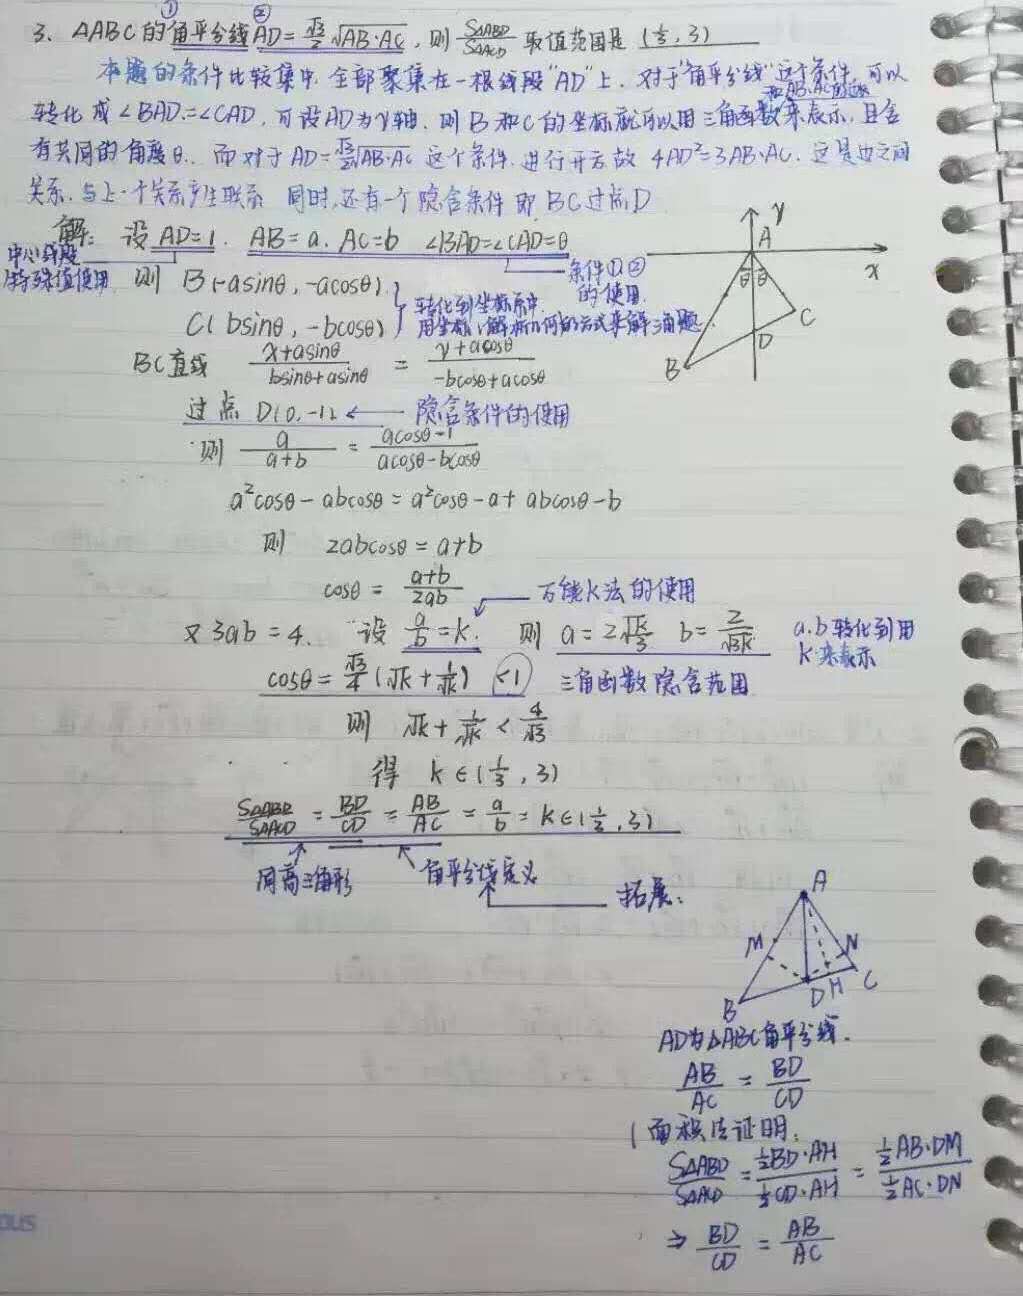 ① ②
3. △ABC的角平分线AD=√3/2 √AB·AC, 则 S△ABD/S△ACD 取值范围是 (1/3, 3)
本题的条件比较集中, 全部聚集在一根线段"AD"上. 对于"角平分线"这个条件, 可以
转化成∠BAD=∠CAD, 可设AD为y轴. 则B和C的坐标就可以用三角函数来表示, 且含
有共同的角度θ. 而对于AD=√3/2 √AB·AC 这个条件. 进行开方故 4AD²=3AB·AC. 这是边之间
关系, 与上一个关系产生联系 同时, 还有一个隐含条件即BC过点D
解: 设AD=1. AB=a. AC=b ∠BAD=∠CAD=θ
中心线段
特殊值使用
条件①②
的使用
则 B(-asinθ, -acosθ)
C(bsinθ, -bcosθ)
转化到坐标系中
BC直线 (x+asinθ)/(bsinθ+asinθ) = (y+acosθ)/(-bcosθ+acosθ)
过点D(0,-1), ← 隐含条件的使用
则 a/(a+b) = (acosθ-1)/(acosθ-bcosθ)
a²cosθ-abcosθ=a²cosθ-a+abcosθ-b
则 2abcosθ=a+b
cosθ = (a+b)/2ab
万能k法的使用
又3ab=4. 设 a/b=k. 则 a=2√(k/3) b=2/√3k
a.b转化到用
k来表示
cosθ=√3/4(√k+1/√k) <1 三角函数隐含范围
则 √k+1/√k < 4/√3
得 k∈(1/3, 3)
S△ABD/S△ACD = BD/CD = AB/AC = a/b = k∈(1/3, 3)
同高三角形
角平分线定义
拓展:
y
A
x
θ θ
C
D
B
A
M
N
B
D H C
AD为△ABC角平分线.
AB/AC = BD/CD
(面积法证明:
S△ABD/S△ACD = ½BD·AH/½CD·AH = ½AB·DM/½AC·DN
⇒ BD/CD = AB/AC
pus